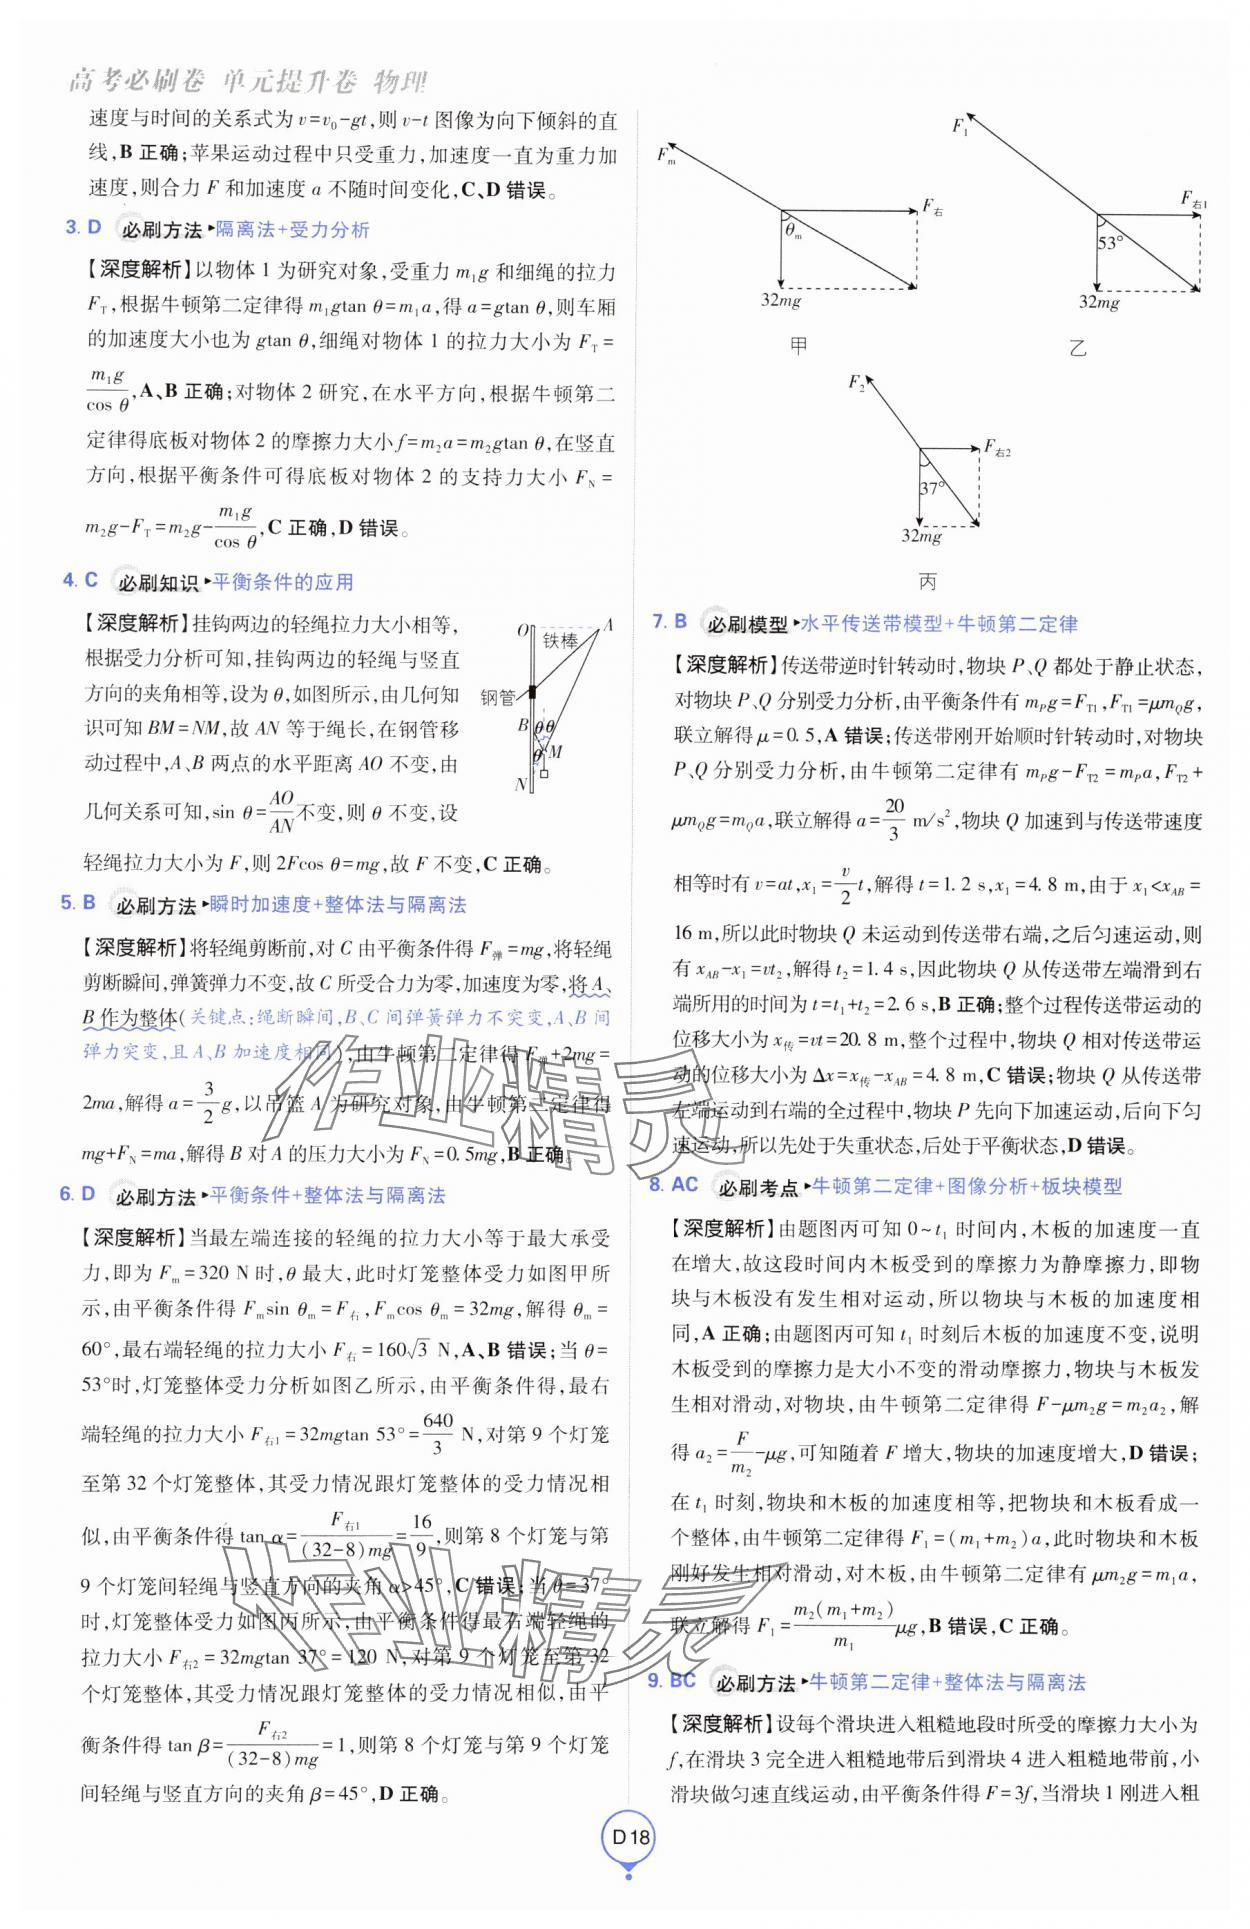 高考必刷卷 单元提升卷 物理
速度与时间的关系式为 v=v₀-gt,则 v-t 图像为向下倾斜的直
线,B 正确;苹果运动过程中只受重力,加速度一直为重力加
速度,则合力 F 和加速度 a 不随时间变化,C、D 错误。
3. D 必刷方法 隔离法+受力分析
【深度解析】以物体 1 为研究对象,受重力 m₁g 和细绳的拉力
F_T,根据牛顿第二定律得 m₁gtan θ=m₁a,得 a=gtan θ,则车厢
的加速度大小也为 gtan θ,细绳对物体 1 的拉力大小为 F_T=
m₁g/cos θ,A、B 正确;对物体 2 研究,在水平方向,根据牛顿第二
定律得底板对物体 2 的摩擦力大小 f=m₂a=m₂gtan θ,在竖直
方向,根据平衡条件可得底板对物体 2 的支持力大小 F_N=
m₂g-F_T=m₂g-m₁g/cos θ,C 正确,D 错误。
4. C 必刷知识 平衡条件的应用
【深度解析】挂钩两边的轻绳拉力大小相等,
根据受力分析可知,挂钩两边的轻绳与竖直
方向的夹角相等,设为 θ,如图所示,由几何知
识可知 BM=NM,故 AN 等于绳长,在钢管移
动过程中,A、B 两点的水平距离 AO 不变,由
几何关系可知,sin θ=AO/AN不变,则 θ 不变,设
轻绳拉力大小为 F,则 2Fcos θ=mg,故 F 不变,C 正确。
O
A
铁棒
钢管
B
θ
θ
θ
M
N
5. B 必刷方法 瞬时加速度+整体法与隔离法
【深度解析】将轻绳剪断前,对 C 由平衡条件得 F弹=mg,将轻绳
剪断瞬间,弹簧弹力不变,故 C 所受合力为零,加速度为零,将 A、
B 作为整体(关键点:绳断瞬间,B、C 间弹簧弹力不突变,A、B 间
弹力突变,且 A、B 加速度相同),由牛顿第二定律得 F弹+2mg=
2ma,解得 a=3/2g,以吊篮 A 为研究对象,由牛顿第二定律得
mg+F_N=ma,解得 B 对 A 的压力大小为 F_N=0.5mg,B 正确。
6. D 必刷方法 平衡条件+整体法与隔离法
【深度解析】当最左端连接的轻绳的拉力大小等于最大承受
力,即为 F_m=320 N 时,θ 最大,此时灯笼整体受力如图甲所
示,由平衡条件得 F_m sin θ_m=F右,F_m cos θ_m=32mg,解得 θ_m=
60°,最右端轻绳的拉力大小 F右=160√3 N,A、B 错误;当 θ=
53°时,灯笼整体受力分析如图乙所示,由平衡条件得,最右
端轻绳的拉力大小 F右1=32mgtan 53°=640/3 N,对第 9 个灯笼
至第 32 个灯笼整体,其受力情况跟灯笼整体的受力情况相
似,由平衡条件得 tan α=F右1/(32-8)mg=16/9,则第 8 个灯笼与第
9 个灯笼间轻绳与竖直方向的夹角 α>45°,C 错误;当 θ=37°
时,灯笼整体受力如图丙所示,由平衡条件得最右端轻绳的
拉力大小 F右2=32mgtan 37°=120 N,对第 9 个灯笼至第 32
个灯笼整体,其受力情况跟灯笼整体的受力情况相似,由平
衡条件得 tan β=F右2/(32-8)mg=1,则第 8 个灯笼与第 9 个灯笼
间轻绳与竖直方向的夹角 β=45°,D 正确。
F_m
F右
θ_m
32mg
甲
F₁
F右1
53°
32mg
乙
F₂
F右2
37°
32mg
丙
7. B 必刷模型 水平传送带模型+牛顿第二定律
【深度解析】传送带逆时针转动时,物块 P、Q 都处于静止状态,
对物块 P、Q 分别受力分析,由平衡条件有 m_P g=F_T1,F_T1=μm_Q g,
联立解得 μ=0.5,A 错误;传送带刚开始顺时针转动时,对物块
P、Q 分别受力分析,由牛顿第二定律有 m_P g-F_T2=m_P a,F_T2+
μm_Q g=m_Q a,联立解得 a=20/3 m/s²,物块 Q 加速到与传送带速度
相等时有 v=at,x₁=v/2t,解得 t=1.2 s,x₁=4.8 m,由于 x₁<x_AB=
16 m,所以此时物块 Q 未运动到传送带右端,之后匀速运动,则
有 x_AB-x₁=vt₂,解得 t₂=1.4 s,因此物块 Q 从传送带左端滑到右
端所用的时间为 t=t₁+t₂=2.6 s,B 正确;整个过程传送带运动的
位移大小为 x传=vt=20.8 m,整个过程中,物块 Q 相对传送带运
动的位移大小为 Δx=x传-x_AB=4.8 m,C 错误;物块 Q 从传送带
左端运动到右端的全过程中,物块 P 先向下加速运动,后向下匀
速运动,所以先处于失重状态,后处于平衡状态,D 错误。
8. AC 必刷考点 牛顿第二定律+图像分析+板块模型
【深度解析】由题图丙可知 0~t₁ 时间内,木板的加速度一直
在增大,故这段时间内木板受到的摩擦力为静摩擦力,即物
块与木板没有发生相对运动,所以物块与木板的加速度相
同,A 正确;由题图丙可知 t₁ 时刻后木板的加速度不变,说明
木板受到的摩擦力是大小不变的滑动摩擦力,物块与木板发
生相对滑动,对物块,由牛顿第二定律得 F-μm₂g=m₂a₂,解
得 a₂=F/m₂-μg,可知随着 F 增大,物块的加速度增大,D 错误;
在 t₁ 时刻,物块和木板的加速度相等,把物块和木板看成一
个整体,由牛顿第二定律得 F₁=(m₁+m₂)a,此时物块和木板
刚好发生相对滑动,对木板,由牛顿第二定律有 μm₂g=m₁a,
联立解得 F₁=m₂(m₁+m₂)/m₁μg,B 错误,C 正确。
9. BC 必刷方法 牛顿第二定律+整体法与隔离法
【深度解析】设每个滑块进入粗糙地段时所受的摩擦力大小为
f,在滑块 3 完全进入粗糙地带后到滑块 4 进入粗糙地带前,小
滑块做匀速直线运动,由平衡条件得 F=3f,当滑块 1 刚进入粗
作业精灵
作业精灵
D18